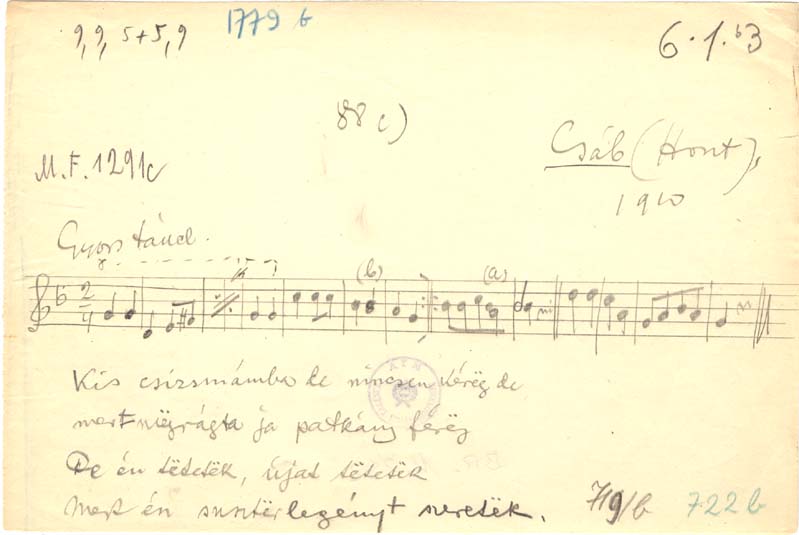 9, 9, 5+5, 9
1779 b
6.1.b3
88 c)
M.F. 1291c
Csáb (Hont),
1910
Gyors tánc.
(b) (a)
2
4
Kis csizsmámba de nincsen kérëg de
mert mëgrágta ja patkány férëg
De én tëtetëk, újat tëtetëk
Mert én susztërlegényt szeretëk.
719/b
722 b